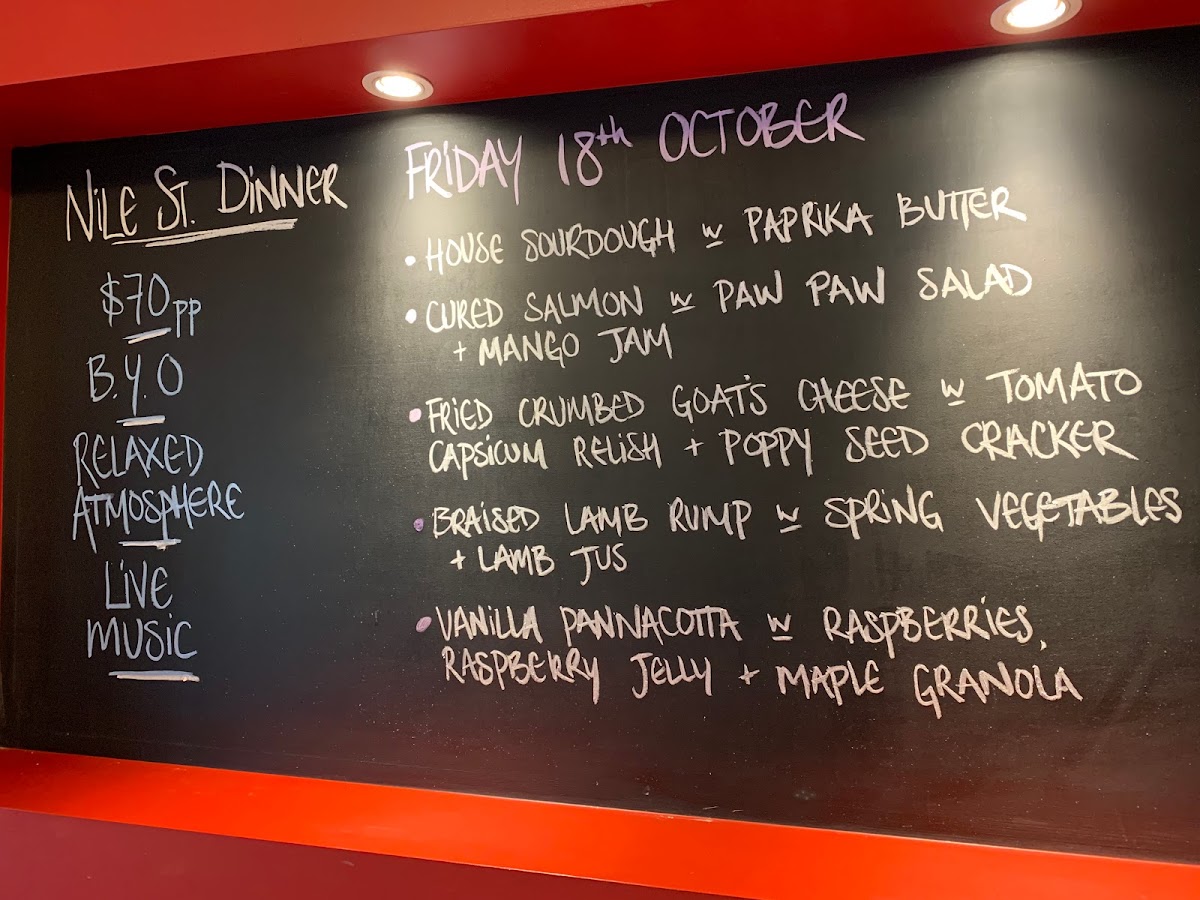 NILE ST. DINNER
$70 PP
B.Y.O
RELAXED
ATMOSPHERE
LIVE
MUSIC
FRIDAY 18th OCTOBER
• HOUSE SOURDOUGH w PAPRIKA BUTTER
• CURED SALMON w PAW PAW SALAD
+ MANGO JAM
• FRIED CRUMBED GOAT'S CHEESE w TOMATO
CAPSICUM RELISH + POPPY SEED CRACKER
• BRAISED LAMB RUMP w SPRING VEGETABLES
+ LAMB JUS
• VANILLA PANNACOTTA w RASPBERRIES,
RASPBERRY JELLY + MAPLE GRANOLA